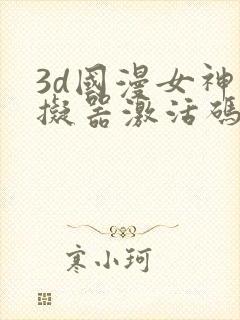 3d國漫女神
擬器激活碼
寒小珂